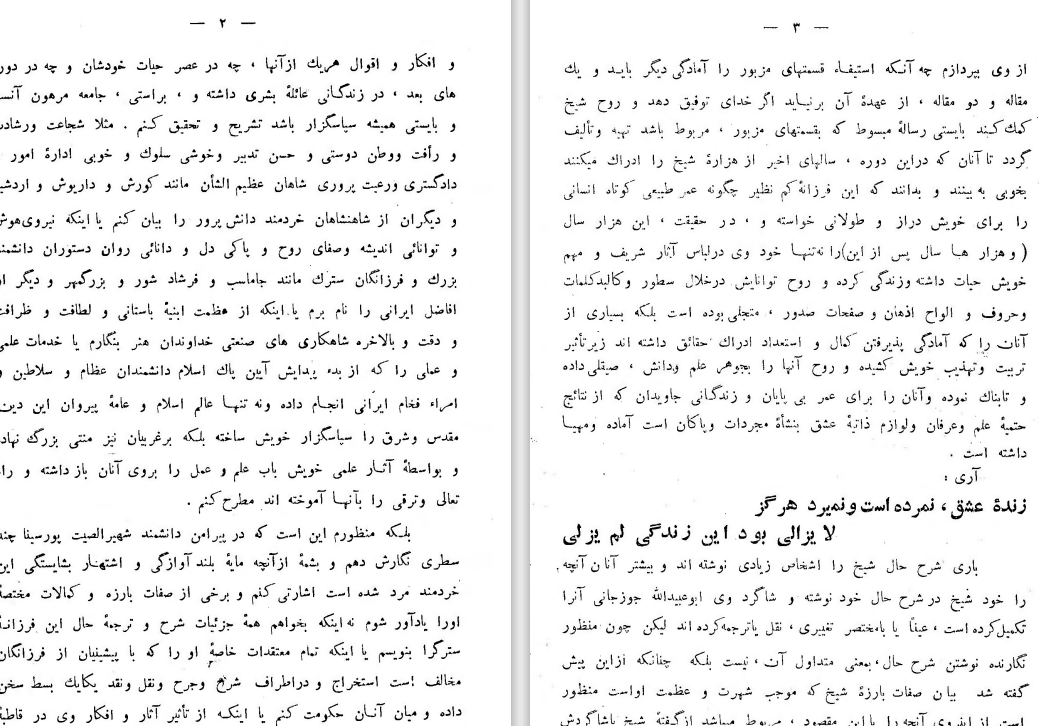 — ۲ —
و افکار و اقوال هریك ازآنها ، چه در عصر حیات خودشان و چه در دور
های بعد ، در زندگانی عائلهٔ بشری داشته و ، براستی ، جامعه مرهون آنست
و بایستی همیشه سپاسگزار باشد تشریح و تحقیق کنم . مثلا شجاعت ورشادت
و رأفت ووطن دوستی و حسن تدبیر وخوشی سلوك و خوبی ادارهٔ امور
دادگستری ورعیت پروری شاهان عظیم الشأن مانند کورش و داریوش و اردشیر
و دیگران از شاهنشاهان خردمند دانش پرور را بیان کنم یا اینکه نیروی هوش
و توانائی اندیشه وصفای روح و پاکی دل و دانائی روان دستوران دانشمند
بزرك و فرزانگان سترك مانند جاماسب و فرشاد شور و بزرگمهر و دیگر از
افاضل ایرانی را نام برم یا اینکه از عظمت ابنیهٔ باستانی و لطافت و ظرافت
و دقت و بالاخره شاهکاری های صنعتی خداوندان هنر بنگارم یا خدمات علمی
و عملی را که از بدء پیدایش آیین پاك اسلام دانشمندان عظام و سلاطین و
امراء فخام ایرانی انجام داده ونه تنها عالم اسلام و عامهٔ پیروان این دین
مقدس وشرق را سپاسگزار خویش ساخته بلکه برغربیان نیز منتی بزرگ نهاد
و بواسطهٔ آثار علمی خویش باب علم و عمل را بروی آنان باز داشته و راه
تعالی وترقی را بآنها آموخته اند مطرح کنم .
بلکه منظورم این است که در پیرامن دانشمند شهیرالصیت پورسینا چند
سطری نگارش دهم و بشمهٔ ازآنچه مایهٔ بلند آوازگی و اشتهار بشایستگی این
خردمند مرد شده است اشارتی کنم و برخی از صفات بارزه و کمالات مختصهٔ
اورا یادآور شوم نه اینکه بخواهم همهٔ جزئیات شرح و ترجمهٔ حال این فرزانهٔ
سترگرا بنویسم یا اینکه تمام معتقدات خاصهٔ او را که با پیشینیان از فرزانگان
مخالف است استخراج و دراطراف شرح وجرح ونقل ونقد یکایك بسط سخن
داده و میان آنان حکومت کنم یا اینکه از تأثیر آثار و افکار وی در قاطبهٔ
— ۳ —
از وی بپردازم چه آنکه استیفاء قسمتهای مزبور را آمادگی دیگر باید و یك
مقاله و دو مقاله ، از عهدهٔ آن برنیاید اگر خدای توفیق دهد و روح شیخ
کمك کند بایستی رسالهٔ مبسوط که بقسمتهای مزبور ، مربوط باشد تهیه وتألیف
گردد تا آنان که دراین دوره ، سالهای اخیر از هزارهٔ شیخ را ادراك میکنند
بخوبی به بینند و بدانند که این فرزانهٔ کم نظیر چگونه عمر طبیعی کوتاه انسانی
را برای خویش دراز و طولانی خواسته و ، در حقیقت ، این هزار سال
( و هزار ها سال پس از این)را نه تنها خود وی درلباس آثار شریف و مهم
خویش حیات داشته وزندگی کرده و روح توانایش درخلال سطور وکالبدکلمات
وحروف و الواح اذهان و صفحات صدور ، متجلی بوده است بلکه بسیاری از
آنان را که آمادگی پذیرفتن کمال و استعداد ادراك حقائق داشته اند زیرتأثیر
تربیت وتهذیب خویش کشیده و روح آنها را بجوهر علم ودانش ، صیقلی داده
و تابناك نموده وآنان را برای عمر بی پایان و زندگانی جاویدان که از نتائج
حتمیهٔ علم وعرفان ولوازم ذاتیهٔ عشق بنشأهٔ مجردات وپاکان است آماده ومهیا
داشته است .
آری :
زندهٔ عشق ، نمرده است ونمیرد هرگز
لایزالی بود این زندگی لم یزلی
باری شرح حال شیخ را اشخاص زیادی نوشته اند و بیشتر آنان آنچه
را خود شیخ در شرح حال خود نوشته و شاگرد وی ابوعبیدالله جوزجانی آنرا
تکمیل کرده است ، عیناً یا بامختصر تغییری ، نقل یاترجمه کرده اند لیکن چون منظور
نگارنده نوشتن شرح حال،بمعنی متداول آن، نیست بلکه چنانکه ازاین پیش
گفته شد بیان صفات بارزهٔ شیخ که موجب شهرت و عظمت اواست منظور
است از اینروی آنچه را با این مقصود ، مربوط میباشد ازگفتهٔ شیخ یاشاگردش